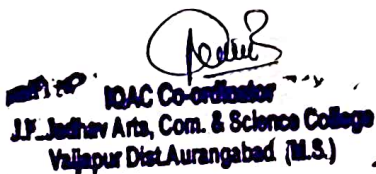 IQAC Co-ordinator
Jadhav Arts, Com. & Science College
Vaijapur Dist.Aurangabad (M.S.)